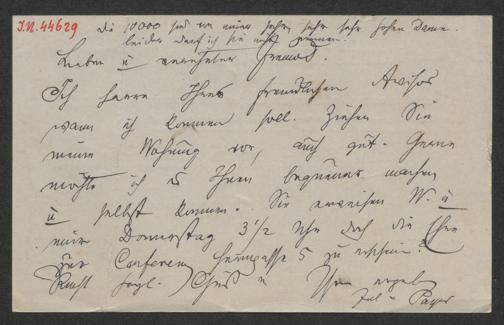 I.N. 44629
die 10000 sind von einer sehr, sehr sehr hohen Dame.
leider darf ich sie nicht nennen.
Lieber u verehrter Freund.
Ich harre Ihres freundlichen Avisos
wann ich kommen soll. Ziehen Sie
meine Wohnung vor, auch gut. Gerne
möchte ich es Ihnen bequemer machen
u selbst kommen. Sie erweisen W. u
mir Donnerstag 3 1/2 Uhr doch die Ehre
zur Conferenz 5 zu erscheinen?
Gruß Ihr ergeb
Jul v Payer